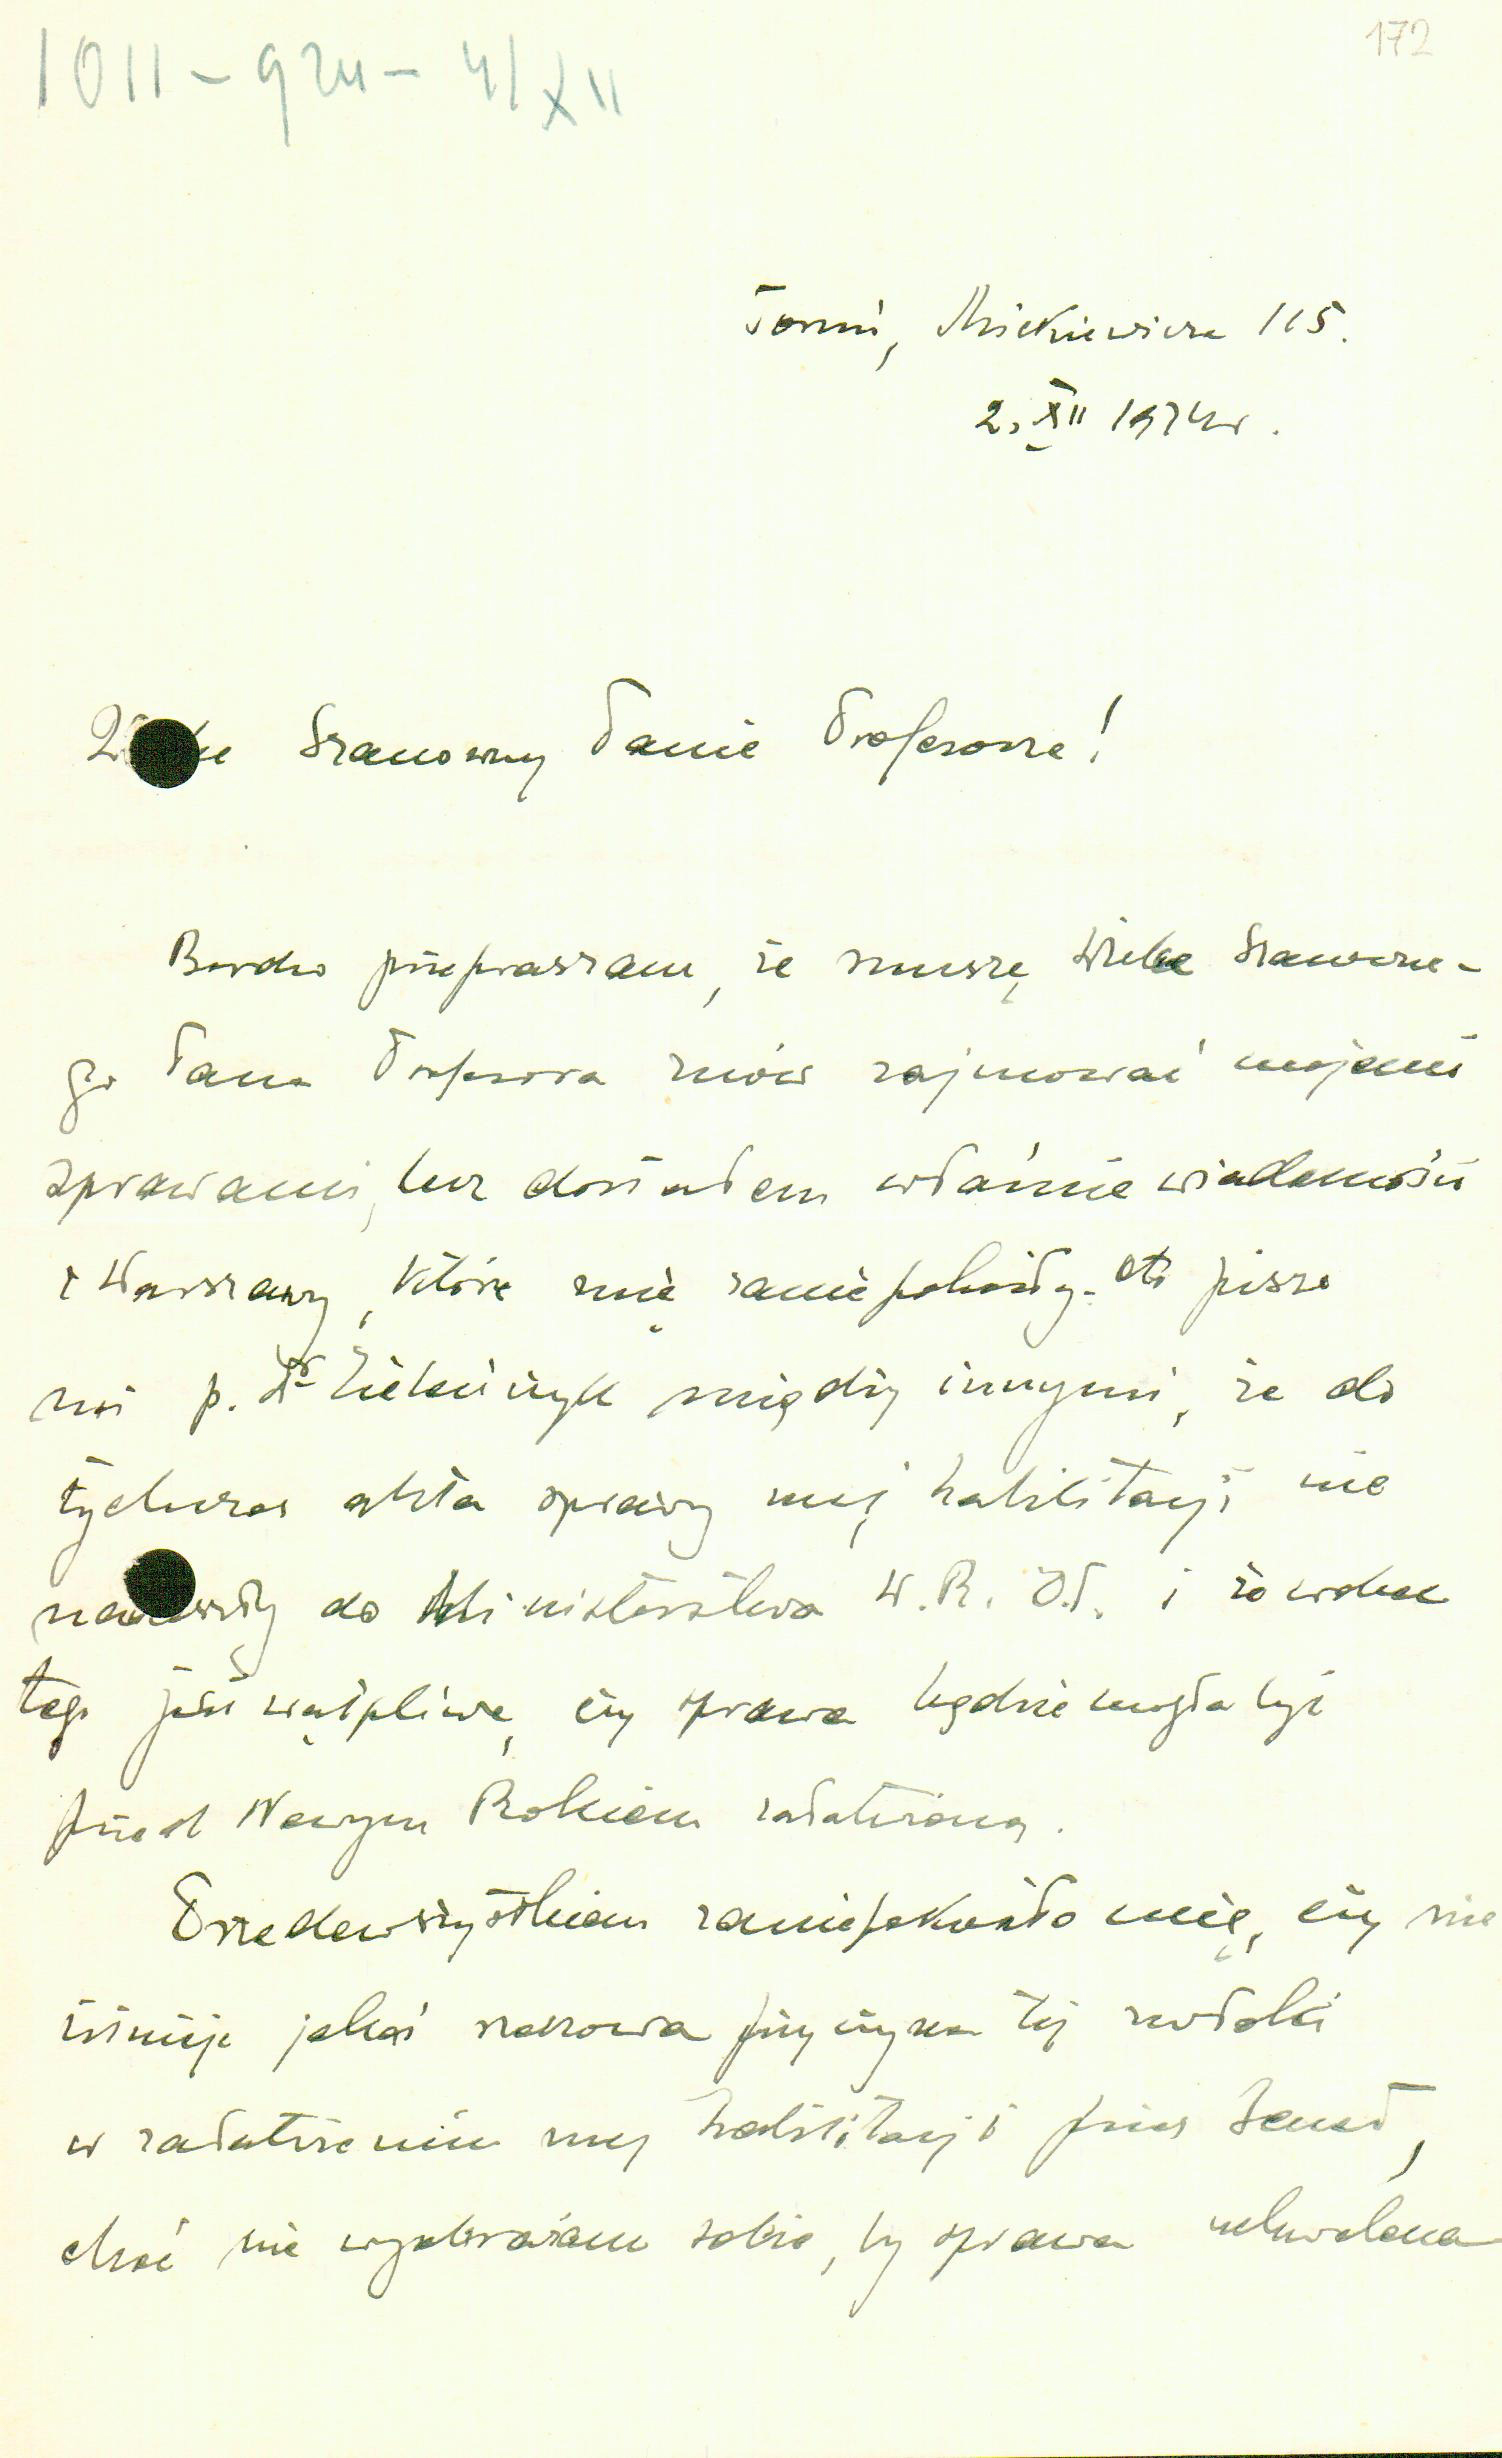 1011-924-4/XII
172
Toruń, Mickiewicza 115.
2. XII 1924r.
Szanowny Panie Profesorze!
Bardzo przepraszam, że muszę Wielce Szanowne-
go Pana Profesora znów zajmować mojemi
sprawami, lecz dostałem właśnie wiadomości
z Warszawy, które mię zaniepokoiły. Oto pisze
mi p. Dr między innymi, że do
tychczas akta sprawy mej habilitacji nie
nadeszły do Ministerstwa W.R. i O.P. i że wobec
tego jest wątpliwe, czy sprawa będzie mogła być
przed Nowym Rokiem załatwiona.
Przedewszystkiem zaniepokoiło mię, czy nie
istnieje jakaś rzeczowa przyczyna tej zwłoki
w załatwieniu mej habilitacji przez Senat,
choć nie wyobrażam sobie, by sprawa uchwalona